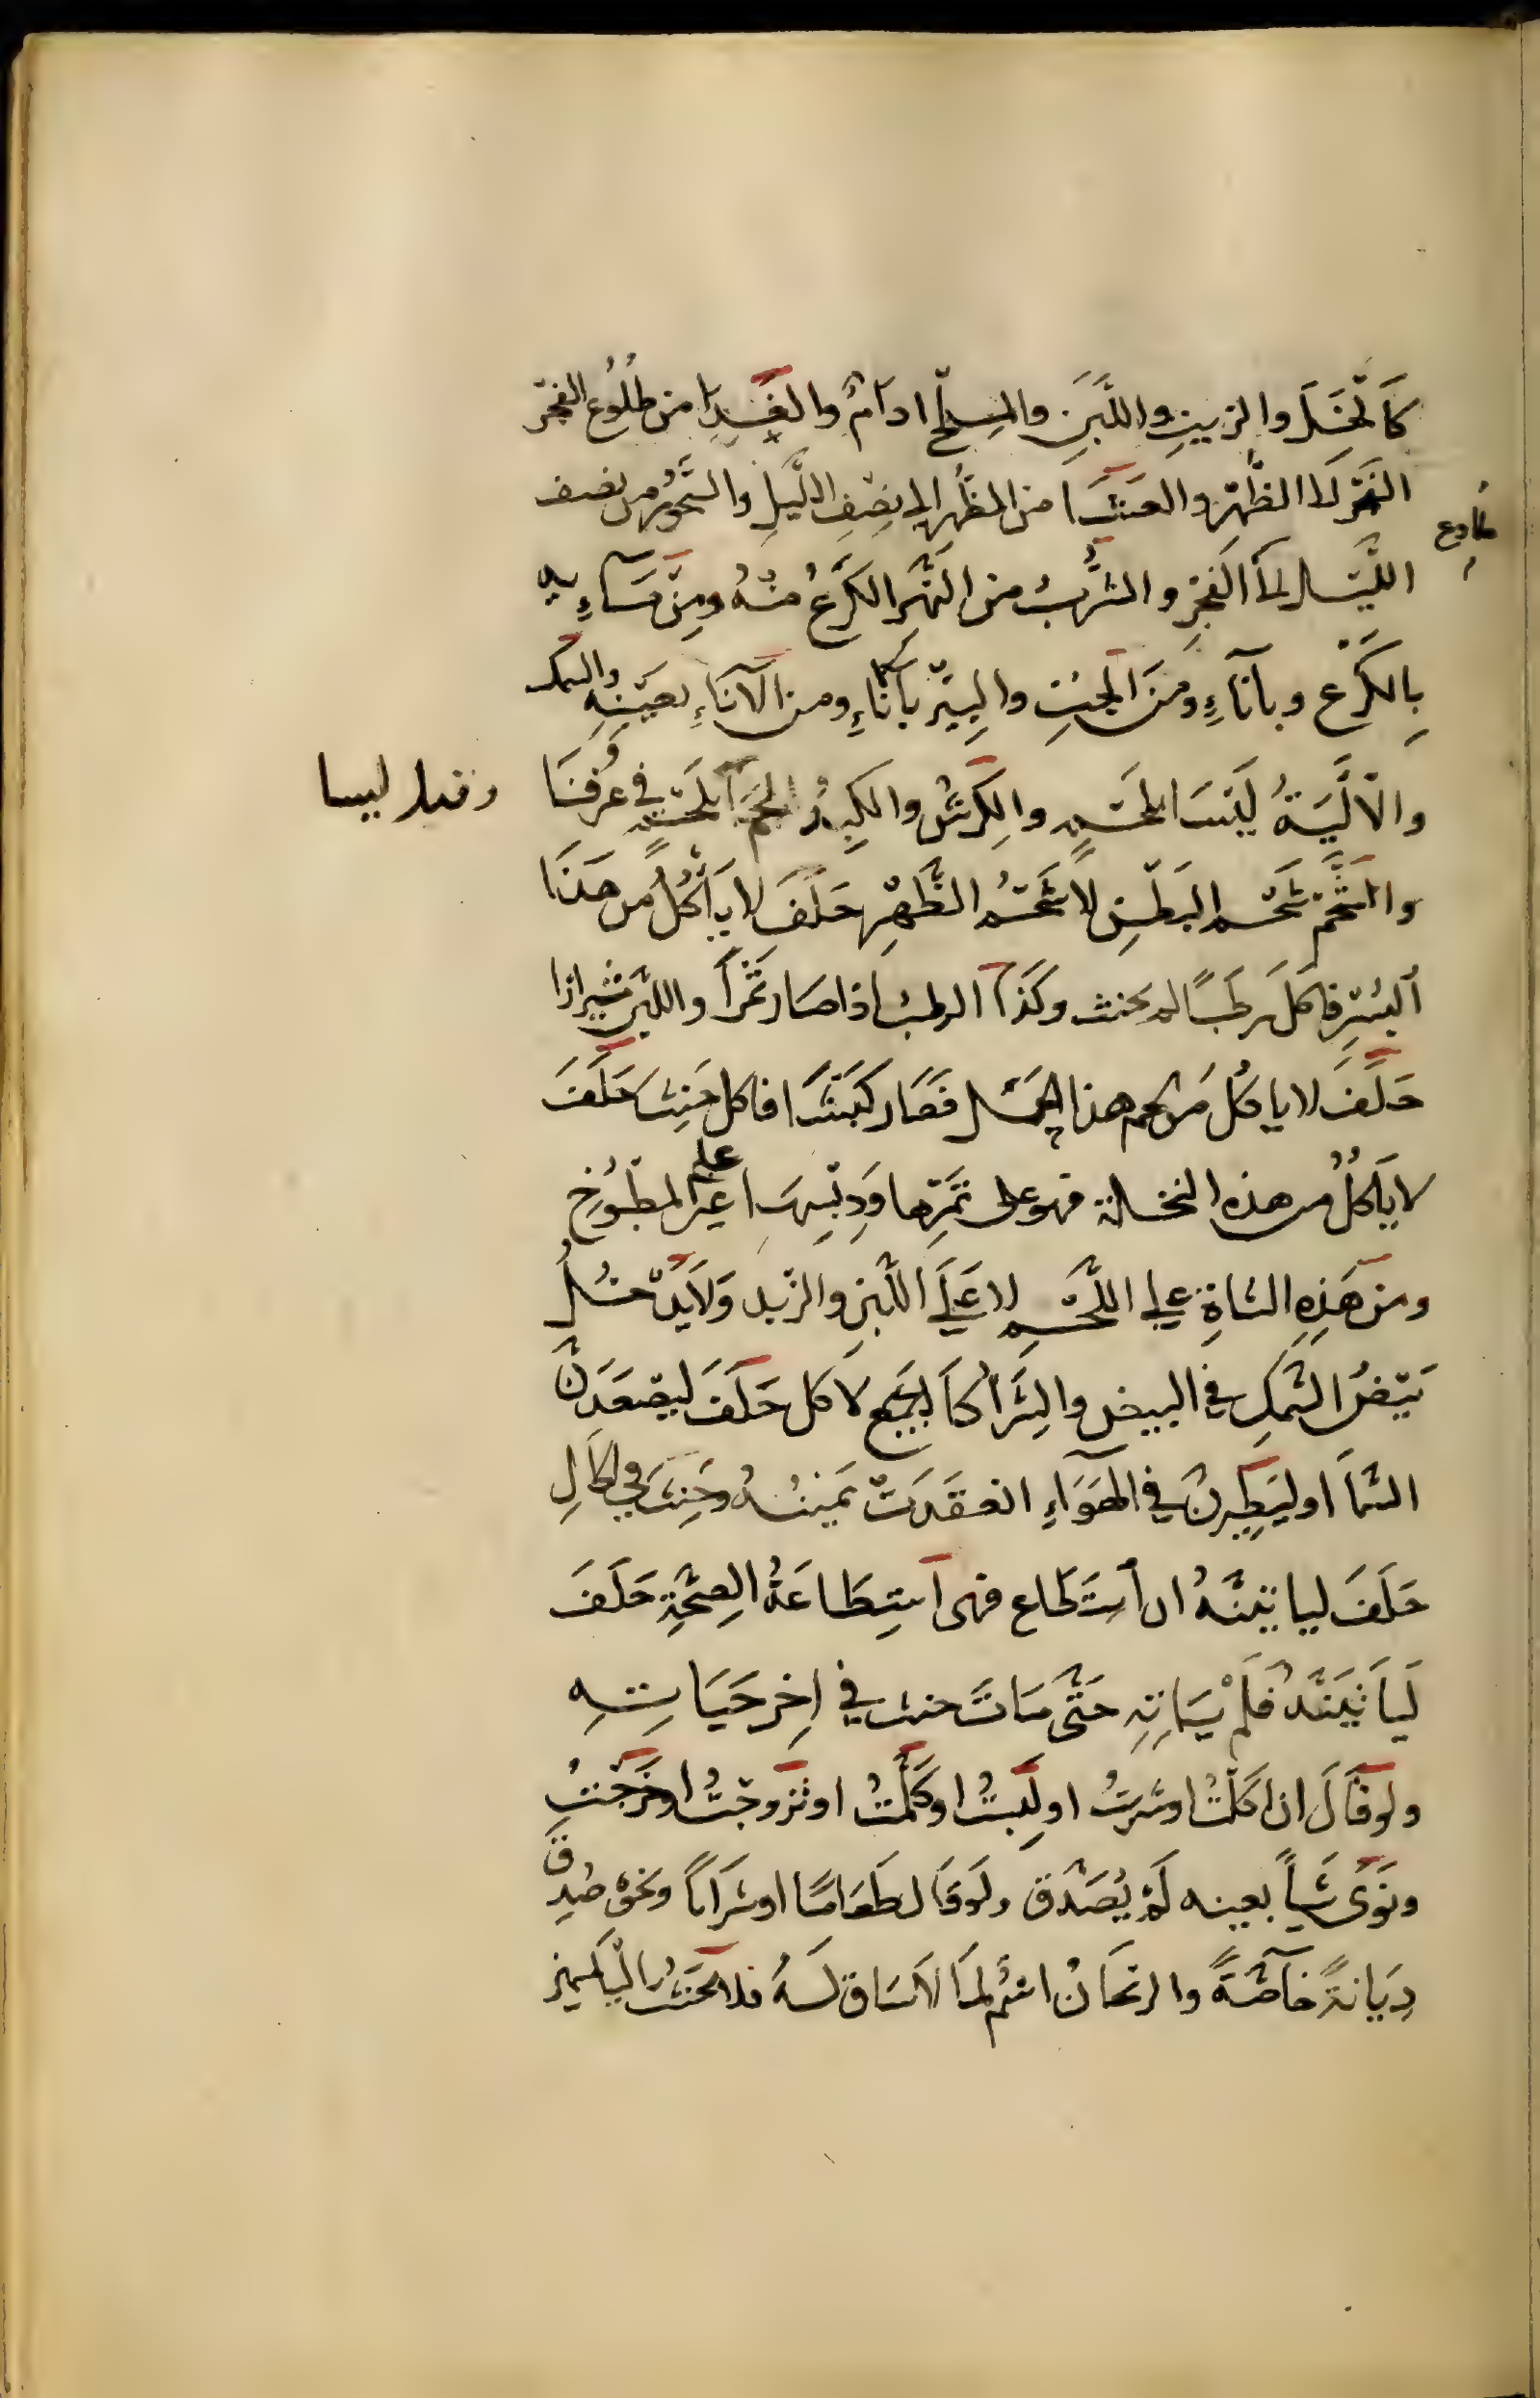 كَالْخَلِّ والزيتِ واللَّبَنِ والمِلْحِ ادامٌ والغَدَا من طُلُوعِ الفجْرِ
الفَجْرِ الى الظُّهْرِ والعَشَا من الظُّهْرِ الى نِصْفِ اللَّيْلِ والسَّحُورُ من نصف
طلوع
اللَّيْلِ الى الفَجْرِ والشُّرْبُ من النَّهْرِ الكَرْعُ مِنْهُ ومِنْ مَآءِهِ
بِالكَرْعِ وبآنآءِ ومَنَ الجُبِّ والبِيْرِ بأنآءٍ ومن الآنَآءِ بعَيْنِهِ والسمك
والأَلْيَةُ لَيْسَا بلَحْمٍ والكِرْشُ والكَبِدُ لحمٌ فى عُرْفِنَا
وقيل ليسا
والشَّحْمُ شَحْمُ البَطْنِ لا شَحْمُ الظَّهْرِ حَلَفَ لا يَأْكُلُ من هَذَا
البُسْرِ فاكلَ رطَبًا لم يحنث وكَذَا الرطبُ اذا صَارَ تَمْرًا واللَّبَنُ شيرازا
حَلَفَ لا ياكُل من لحم هذا الحَمَلِ فصَار كَبْشًا فاكل حَنِثَ حَلَفَ
لا يَأكُلُ من هذه النخلة فهو على تَمْرِها ودِبْسِهَا غَيْرِ المطْبُوخِ
ومن هَذِهِ الشاةِ على اللَّحْمِ لا عَلَى اللَّبَنِ والزُّبد ولا يَدْخُلُ
بَيْضُ السَّمَكِ فى البيض والشِّرَا كالبيع لا كل حَلَفَ ليَصْعَدَنَّ
السَّمَا او ليَطِيْرنَّ فى الهَوَآءِ انعقَدَتْ يَمِيْنُهُ وحَنِثَ فى الحَالِ
حَلَفَ لياتِيَنَّهُ ان استطاع فهى استِطَاعَةُ الصِّحَّةِ حَلَفَ
لَيَأتِيَنَّهُ فَلَمْ يَاتِهِ حَتَّى مَاتَ حنث فى اخِرِ حَيَاتِهِ
ولو قَالَ ان اكَلْتُ او شربتُ او لَبِسْتُ او كَلَّمْتُ او تزوجْتُ او خَرَجْتُ
ونَوَى شَيأً بعينه لَمْ يُصَدَّق ولَو قَال طَعَامًا او شَرَابًا ونَحْوَ صُدِّقَ
دِيَانةً خآصَّةً والريحَانُ اسْمٌ لمَا لا سَاقَ لَهُ فلا يَحْنَثُ باليَاسَمِيْن